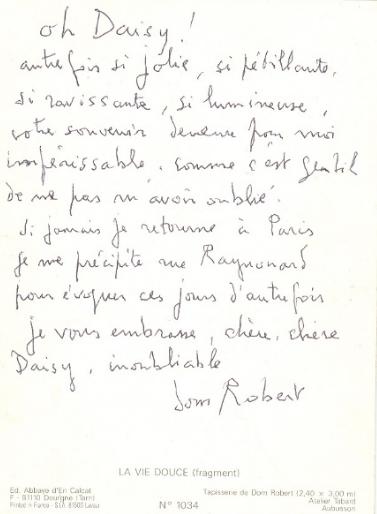 oh Daisy !
autrefois si jolie, si pétillante,
si ravissante, si lumineuse,
votre souvenir demeure pour moi
impérissable. comme c'est gentil
de ne pas m'avoir oublié.
si jamais je retourne à Paris
je me précipite rue Raynouard
pour évoquer ces jours d'autrefois
je vous embrasse, chère, chère
Daisy, inoubliable
Dom Robert
LA VIE DOUCE (fragment)
Ed. Abbaye d'En Calcat
F - 81110 Dourgne (Tarn)
Printed in France - S.I.A. 81500 Lavaur
N° 1034
Tapisserie de Dom Robert (2,40 x 3,00 m)
Atelier Tabard
Aubusson